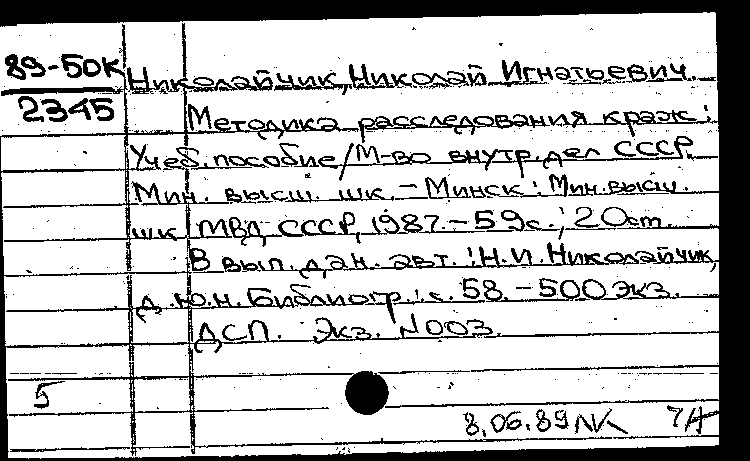 89-50К Николайчик, Николай Игнатьевич.
2345 Методика расследования краж:
Учеб. пособие/М-во внутр. дел СССР,
Мин. высш. шк. - Минск: Мин. высш.
шк. МВД СССР, 1987. - 59 с.; 20 см.
В вып. дан. авт.: Н.И. Николайчик,
д.ю.н. Библиогр.: с. 58. - 500 экз.
ДСП. Экз. N003.
5
8.06.89